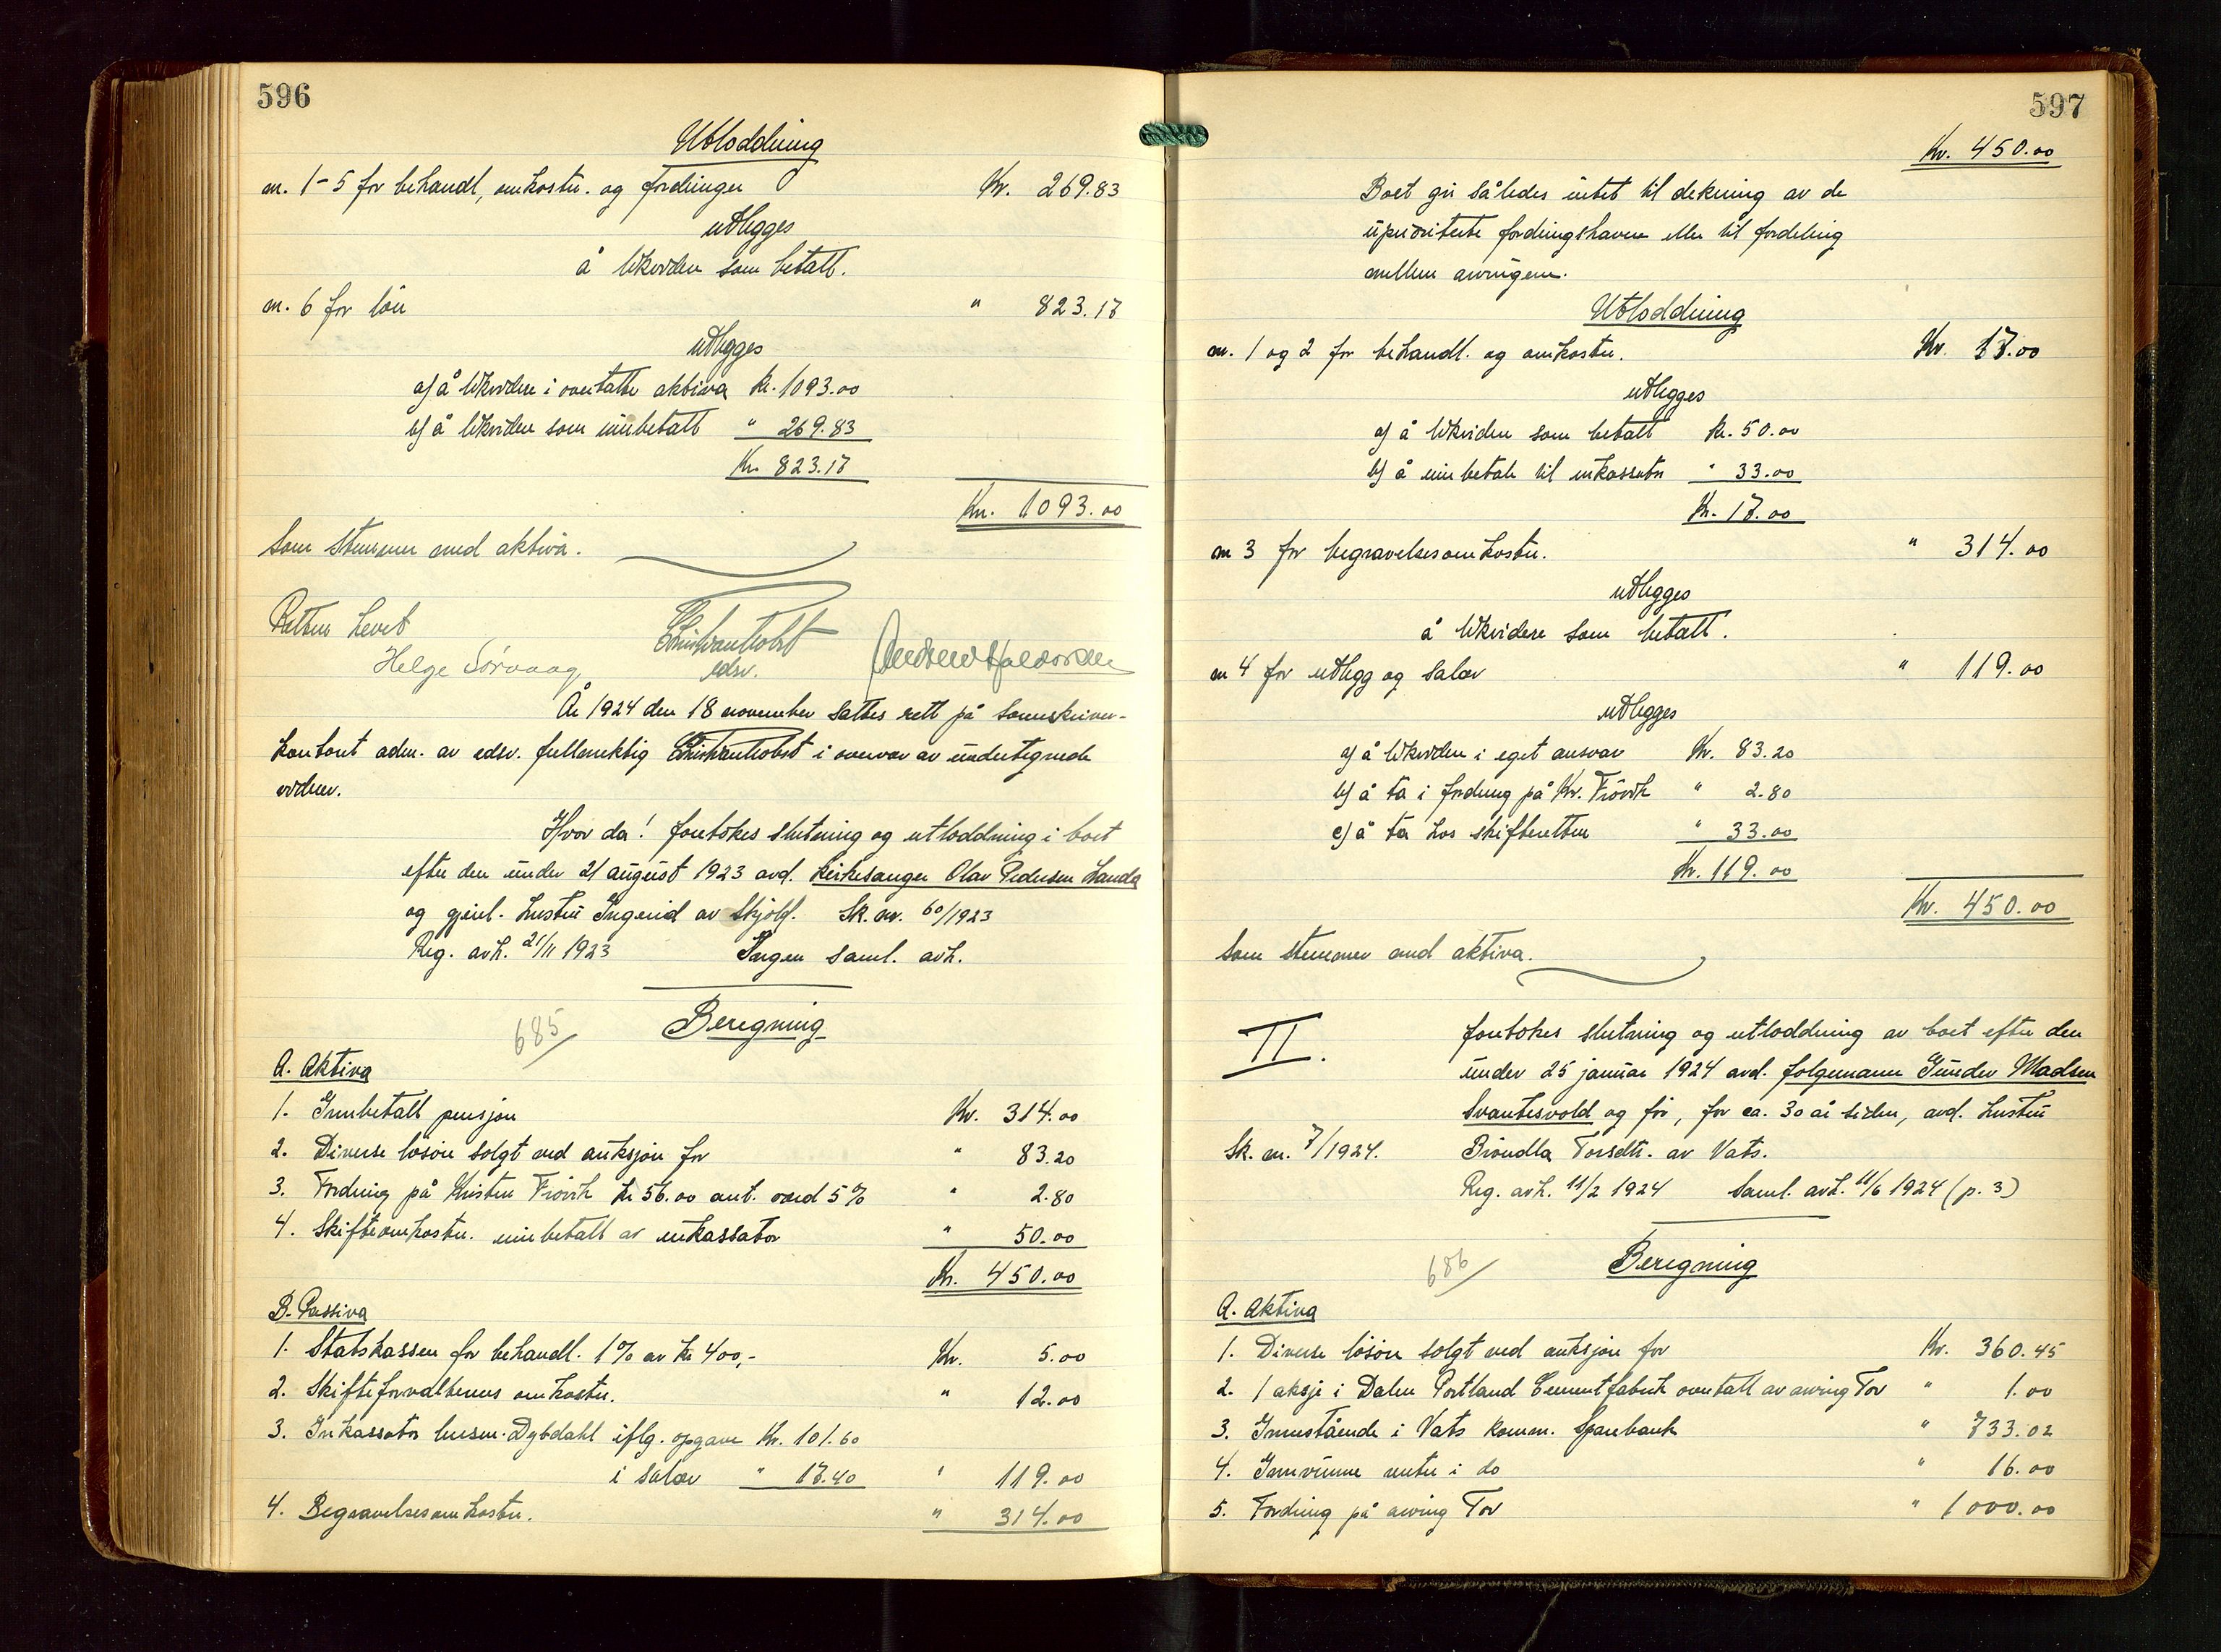 596
Utloddning
nr. 1-5 for behandl, omkostn. og fordringer Kr. 269.83
utlegges
å likvidere som betalt.
nr. 6 for lån " 823.17
utlegges
a) å likvidere i overtatte aktiva Kr. 1093.00
b) å likvidere som innbetalt " 269.83
Kr. 823.17
Kr. 1093.00
Som stemmer med aktiva.
Retten hevet
Helge Sørvaag
edsv.
År 1924 den 18 november sattes rett på sorenskriver-
kontoret adm. av edsv. fullmektig i overvær av undertegnede
vidner.
Hvor da! foretokes slutning og utloddning i boet
efter den under 21 august 1923 avd. kirkesanger Olav Pedersen Landa
og gjenl. hustru Ingerid av Skjold. Sk. nr. 60/1923
Reg. avh. 21/11 1923 Ingen saml. avh.
685
Beregning
A. Aktiva
1. Innbetalt pensjon Kr. 314.00
2. Diverse løsøre solgt ved auksjon for " 83.20
3. Fordring på Kristen Frövik kr 56.00 ant. værd 5% " 2.80
4. Skifteomkostn. innbetalt av inkassator " 50.00
Kr. 450.00
B. Passiva
1. Statskassen for behandl. 1% av kr 400,- Kr. 5.00
2. Skifteforvalterens omkostn. " 12.00
3. Inkassator lensm. Dybdahl iflg. opgave Kr. 101.60
i salær " 17.40 " 119.00
4. Begravelsesomkostn. " 314.00
597
Kr. 450.00
Boet gir således intet til dekning av de
uprioriterte fordringshavere eller til fordeling
mellem arvingene.
Utloddning
nr. 1 og 2 for behandl. og omkostn. Kr. 17.00
utlegges
a) å likvidere som betalt Kr. 50.00
b) å innbetale til inkassator " 33.00
Kr. 17.00
nr 3 for begravelsesomkostn. " 314.00
utlegges
å likvidere som betalt.
nr 4 for utlegg og salær " 119.00
utlegges
a) å likvidere i eget ansvar Kr. 83.20
b) å ta i fordring på Kr. Frövik " 2.80
c) å ta hos skifteretten " 33.00
Kr. 119.00
Kr. 450.00
Som stemmer med aktiva.
II. foretokes slutning og utloddning av boet efter den
under 25 januar 1924 avd. folgemann Gunder Madsen
Svantesvold og før, for ca. 30 år siden, avd. hustru
Sk. nr. 7/1924. Bröndla Torsdtr. av Vats.
Reg. avh. 11/2 1924 Saml. avh. 11/6 1924 (p. 3)
686
Beregning
A. Aktiva
1. Diverse løsøre solgt ved auksjon for Kr. 360.45
2. 1 aksje i Dalen Portland Cementfabrik overtatt av arving Tor " 1.00
3. Innestående i Vats komm. Sparebank " 733.02
4. Innvunne renter i do " 16.00
5. Fordring på arving Tor " 1000.00